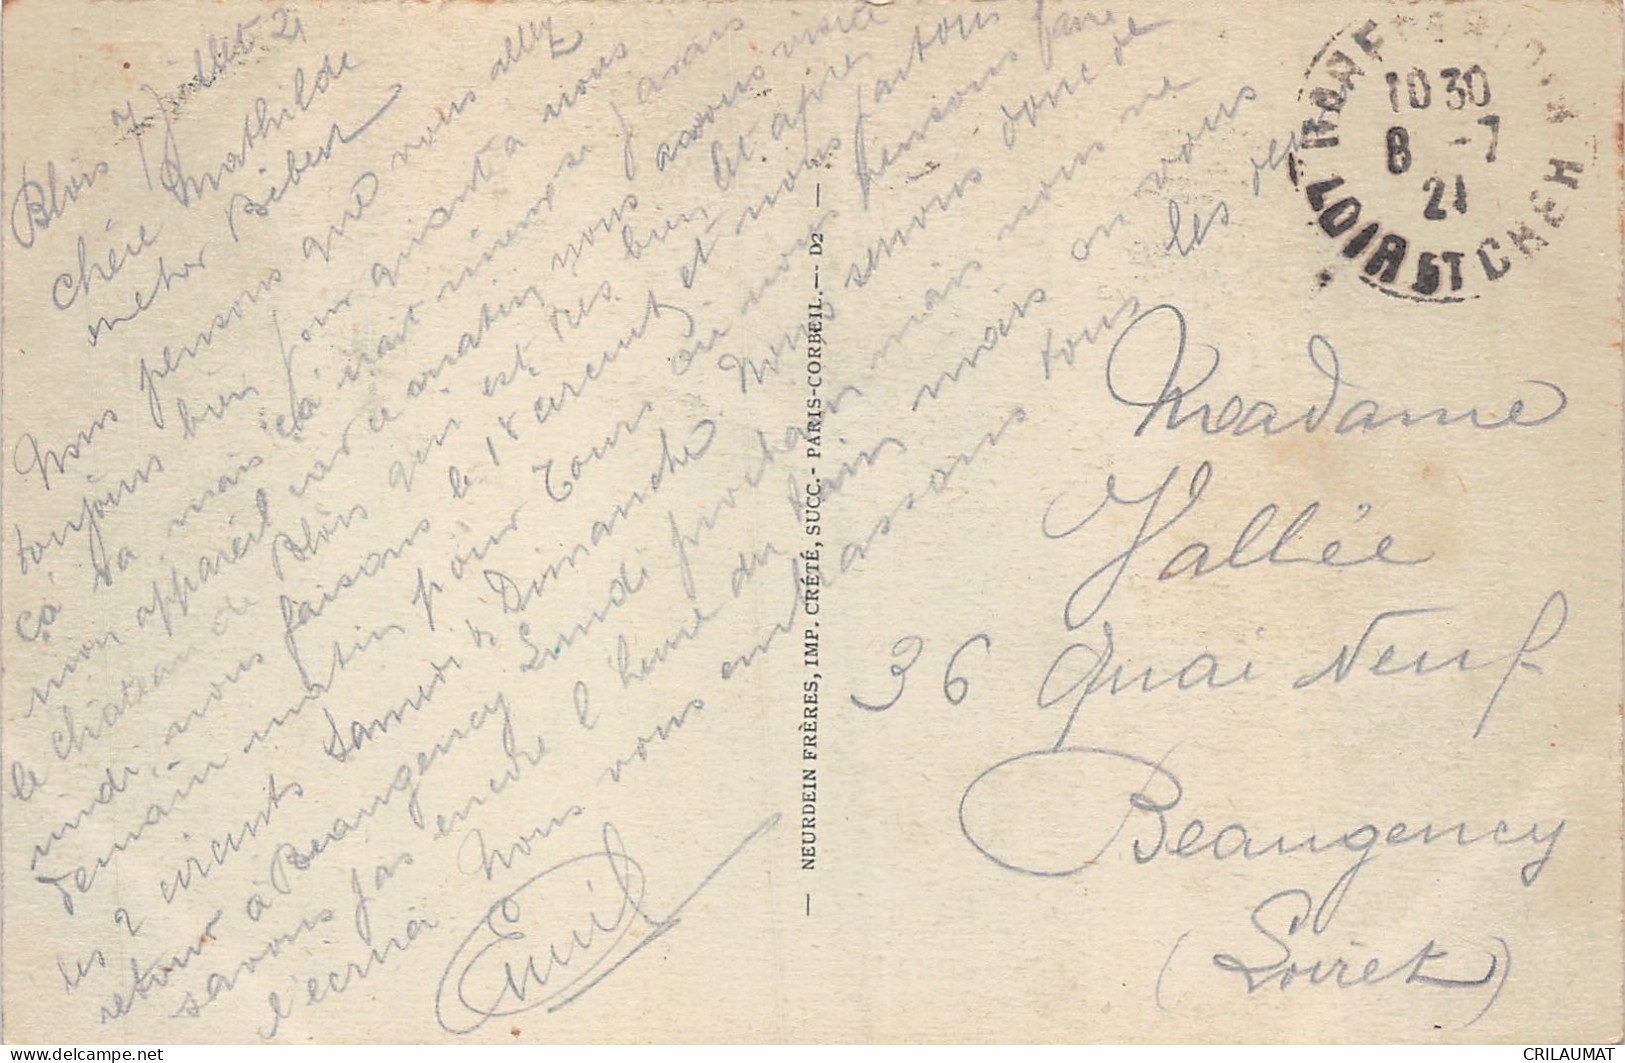 Blois 7 Juillet 21
Chère Mathilde
et cher Bébert
Nous pensons que vous allez
toujours bien pour quant à nous
ça va mais ça irait mieux si j'avais
mon appareil car ce matin nous avons visité
le château de Blois qui est très bien et après
midi, nous faisons le 1er circuit et nous partons
demain matin pour Tours où nous pensons faire
les 2 circuits Samedi & Dimanche. Nous serons donc de
retour à Beaugency Lundi prochain mais nous ne
savons pas encore l'heure du train mais on vous
l'écrira Nous vous embrassons tous les deux
Emile
— NEURDEIN FRÈRES, IMP. CRÉTÉ, SUCC.- PARIS-CORBEIL. — D2 —
10 30
8 -7
21
LOIR ET CHER
Madame
Vallée
36 Quai Neuf
Beaugency
(Loiret)
CRILAUMAT